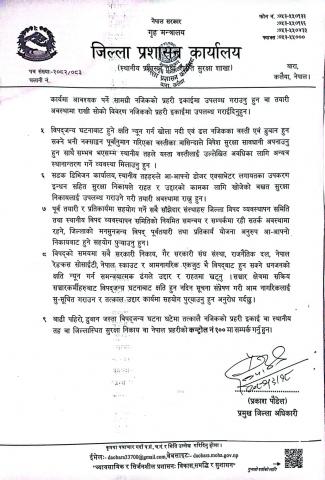 नेपाल सरकार
गृह मन्त्रालय
जिल्ला प्रशासन कार्यालय
(स्थानीय प्रशासन तथा शान्ति सुरक्षा शाखा)
पत्र संख्या-२०८२/०८३
चलानी नं.
बारा,
कलैया, नेपाल।
कार्यमा आवश्यक पर्ने सामग्री नजिकको प्रहरी इकाईमा उपलब्ध गराउनु हुन वा तयारी
अवस्थामा राखी सोको विवरण नजिकको प्रहरी इकाईमा उपलब्ध गराईदिनुहुन।
५ विपद्जन्य घटनाबाट हुने क्षति न्यून गर्न खोला नदी एवं ढल नजिकका वस्ती एवं डुबान हुन
सक्ने भनी नक्साङ्कन पूर्वानुमान गरिएका वस्तीका बासिन्दाले विशेष सुरक्षा सावधानी अपनाउनु
हुन साथै सम्भव भएसम्म स्थानीय तहले यस्ता वस्तीलाई उल्लेखित अवधिका लागि अन्यत्र
स्थानान्तरण गर्ने व्यवस्था मिलाउनु हुन ।
६ सडक डिभिजन कार्यालय, स्थानीय तहहरुले आ-आफ्नो डोजर एक्साभेटर लगायतका उपकरण
इन्धन सहित सुरक्षा निकायले राहत र उद्दारको कामका लागि खोजेको बखत सुरक्षा
निकायलाई उपलब्ध गराउने गरी तयारी अवस्थामा राख्नु हुन।
७ पूर्व तयारी र प्रतिकार्यमा सहयोग गर्ने सबै साझेदार संस्थाहरु जिल्ला विपद व्यवस्थापन समिति
तथा स्थानीय विपद व्यवस्थापन समितिको नियमित सम्पर्क र सम्पर्कमा रही सतर्क अवस्थामा
रहने, जिल्लाको मनसुनजन्य विपद् पूर्वतयारी तथा प्रतिकार्य योजना अनुरुप आ-आफ्नो
निकायबाट हुने सहयोग पुर्‍याउनु हुन।
८ विपदको समयमा सबै सरकारी निकाय, गैर सरकारी संघ संस्था, राजनैतिक दल, नेपाल
रेडक्रस सोसाईटी, नेपाल स्काउट र आमनागरिक एकजुट भै विपद्बाट हुन सक्ने धनजनको
क्षति न्यून गर्न समन्वयात्मक ढंगले उद्दार र राहतमा खट्नु । सञ्चार क्षेत्रमा सक्रिय
सञ्चारकर्मीहरुबाट विपद्जन्य घटनाबाट क्षति हुन नदिन सूचना संप्रेषण गरी आम नागरिकलाई
सु-सूचित गराउन र तत्काल उद्दार कार्यमा सहयोग पुर्‍याउनु हुन अनुरोध गर्दछु।
९ बाढी पहिरो, डुबान जस्ता विपद्जन्य घटना घटेमा तत्कालै नजिकको प्रहरी इकाई वा स्थानीय
तह वा जिल्लास्थित सुरक्षा निकाय वा नेपाल प्रहरीको कन्ट्रोल नं १०० मा सम्पर्क गर्नु हुन।
(प्रकाश पौडेल)
प्रमुख जिल्ला अधिकारी
ईमेल:- dacbara33700@gmail.com, वेबसाइट:- dacbara.moha.gov.np
"व्यावसायिक र सिर्जनशील प्रशासनः विकास, समृद्धि र सुशासन"